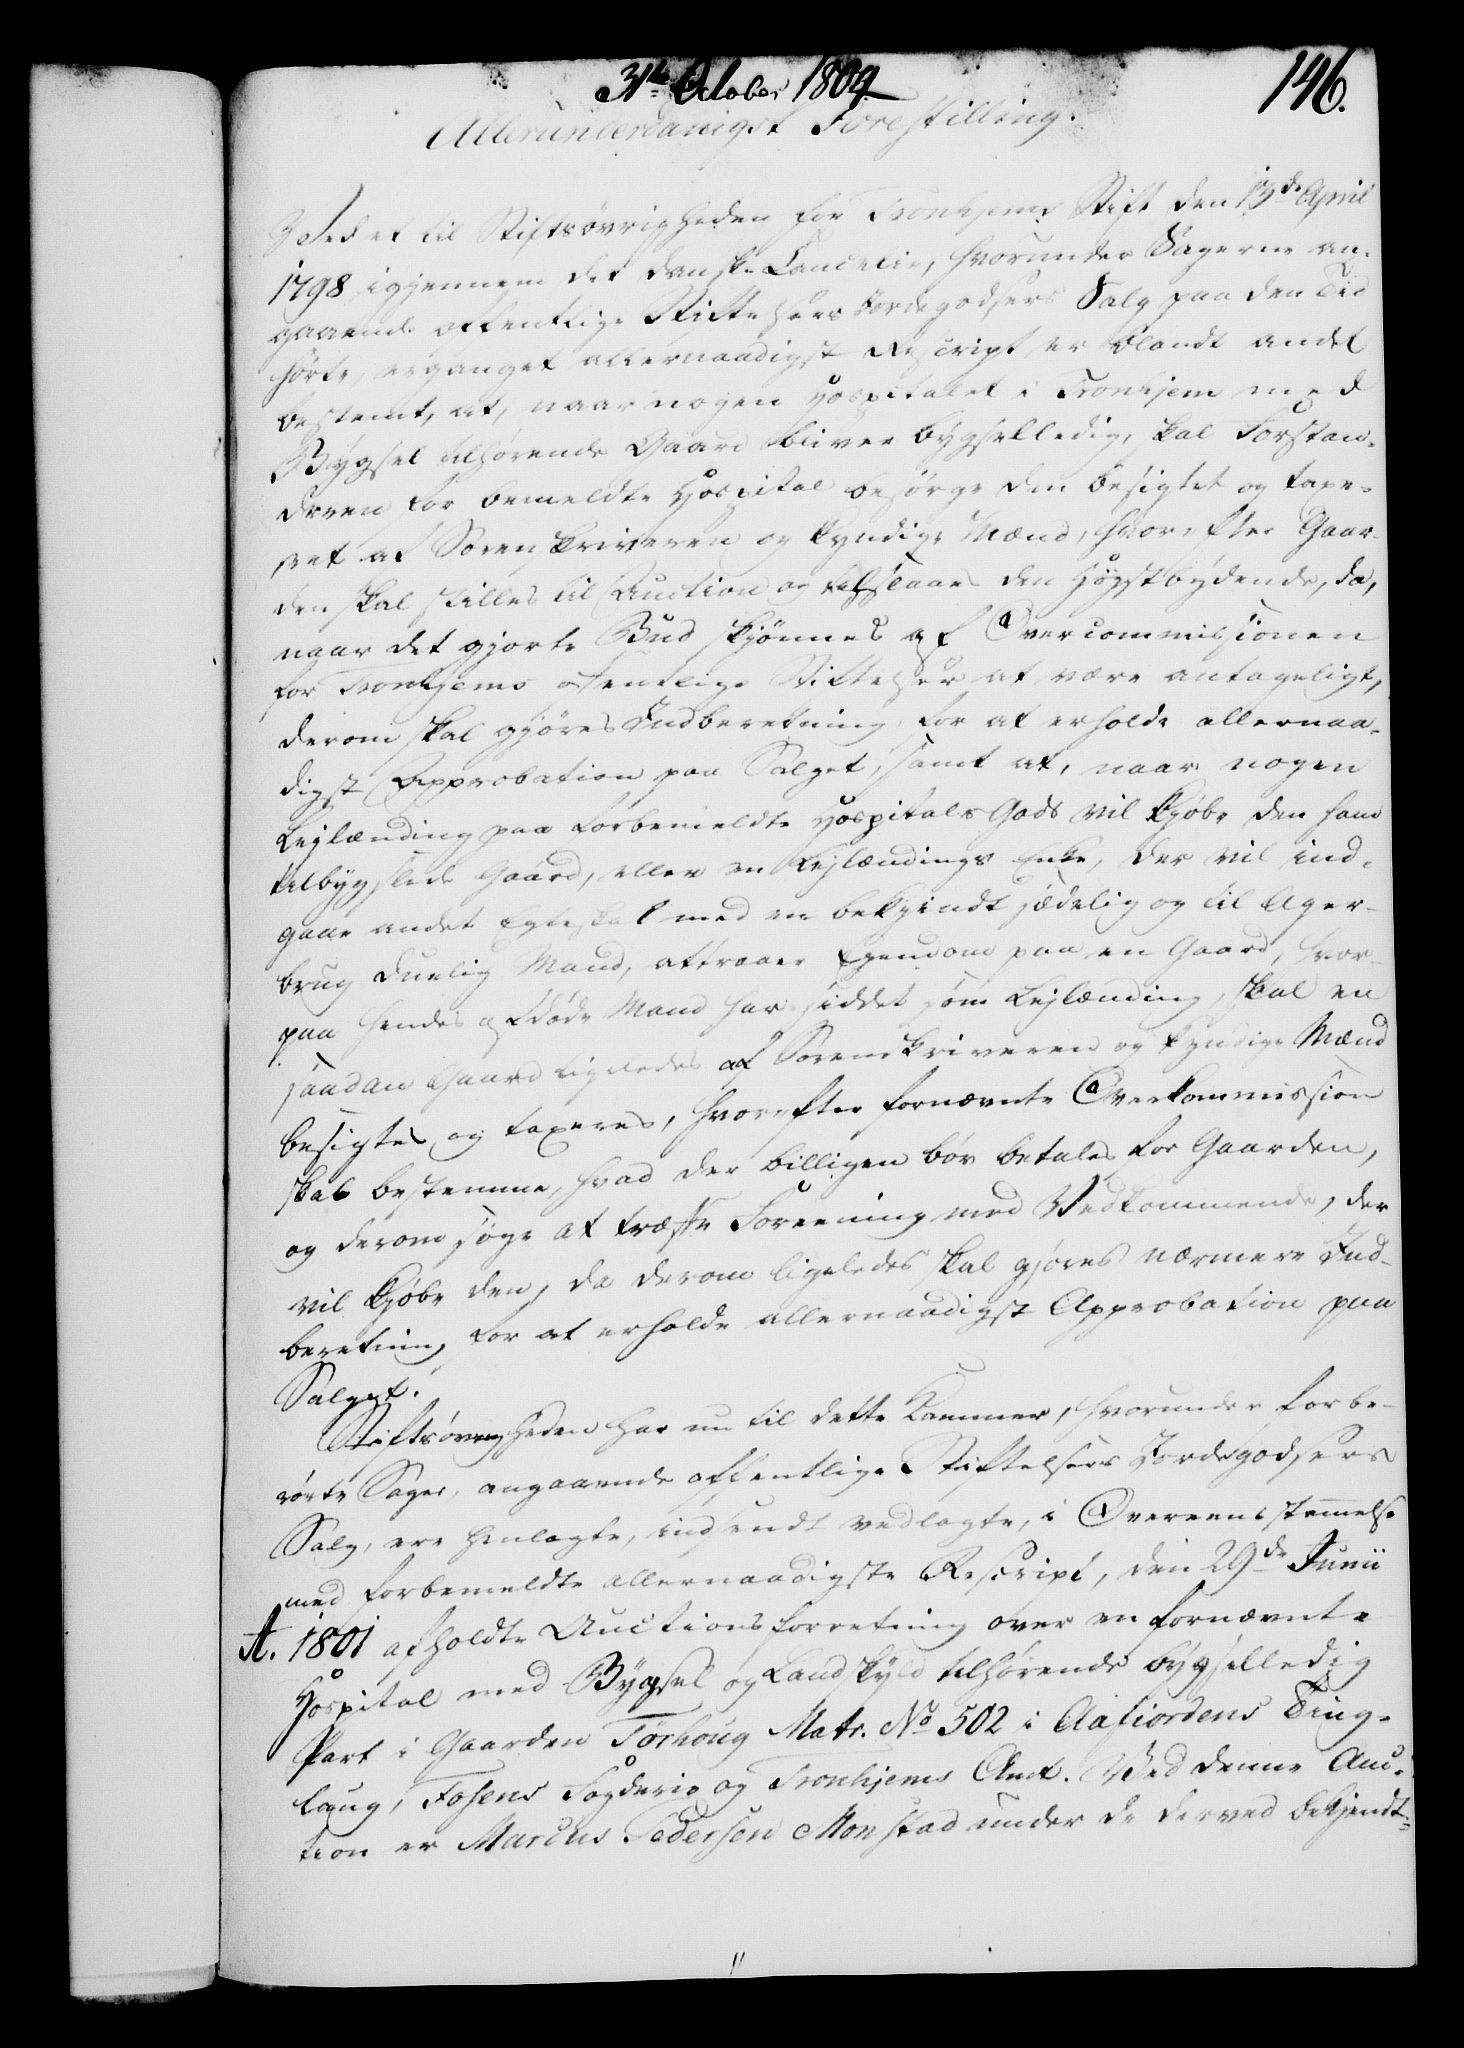 31te October 1804
146.
Allerunterdanigst Forestilling.
Ved et til Stiftsøvrigheden for Tronhjems Stift den 13de April
1798 igjennem det danske Cancelie, hvorunder Sagerne an-
gaaende offentlige Stiftelsers Jordegodsers Salg paa den Tid
hørte, erganget allernaadigst Rescript er blandt andet
bestemt, at, naar nogen Hospitalet i Tronhjem med
Bygsel tilhørende Gaard bliver bygselledig, skal Forstan-
deren for bemeldte Hospital besørge den besigtet og taxe-
ret af Sorenskriveren og kyndige Mænd, hvorefter Gaar-
den skal stilles til Auction og tilslaaes den Høystbydende, da,
naar det gjorte Bud skjønnes af Overcommissionen
for Tronhjems offentlige Stiftelser at være antageligt,
derom skal gjøres Indberetning, for at erholde allernaa-
digst Approbation paa Salget, samt at, naar nogen
Lejlænding paa forbemeldte Hospitals Gods vil kjøbe den ham
tilbygslede Gaard, eller en Lejlændings Enke, der vil ind-
gaae andet Egteskab med en bekjendt sædelig og til Ager-
brug duelig Mand, attraaer Egendom paa en Gaard, hvor-
paa hendes afdøde Mand har siddet som Lejlænding, skal en
saadan Gaard ligeledes af Sorenskriveren og kyndige Mænd
besigtes og taxeres, hvorefter fornævnte Overkommission
skal bestemme, hvad der billigen bør betales for Gaarden,
og derom søge at træffe Foreening med Vedkommende, der
vil kjøbe den, da derom ligeledes skal gjøres nærmere Ind-
beretning for at erholde allernaadigst Approbation paa
Salget.
Stiftsøvrigheden har nu til dette Kammer, hvorunder forbe-
rørte Sager, angaaende offentlige Stiftelsers Jordegodsers
Salg, ere henlagte, indsendt vedlagte, i Overeensstemmelse
med forbemeldte allernaadigste Rescript, den 29de Junii
A. 1801 afholdte Auctionsforretning over en fornævnte
Hospital med Bygsel og Landskyld tilhørende bygselledig
Part i Gaarden Tørhoug Matr. No 502 i Aafiordens Ting-
laug, Fosens Fogderie og Tronhjems Amt. Ved denne Auc-
tion er Marcus Pedersen Monstad under de derved bekjendt-